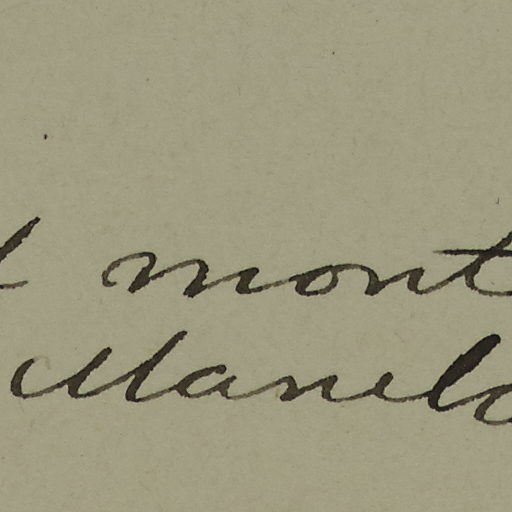 mont
Manila